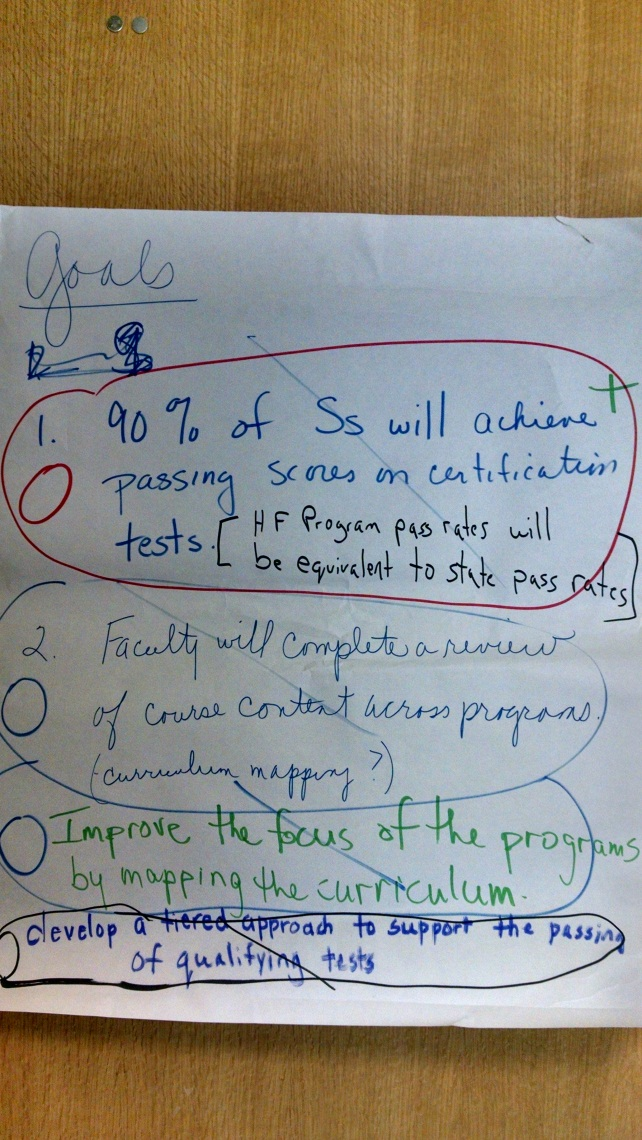 Goals
1. 90% of Ss will achieve
passing scores on certification
tests. [HF Program pass rates will
be equivalent to state pass rates]
2. Faculty will complete a review
of course content across programs.
(curriculum mapping?)
Improve the focus of the programs
by mapping the curriculum.
develop a tiered approach to support the passing
of qualifying tests